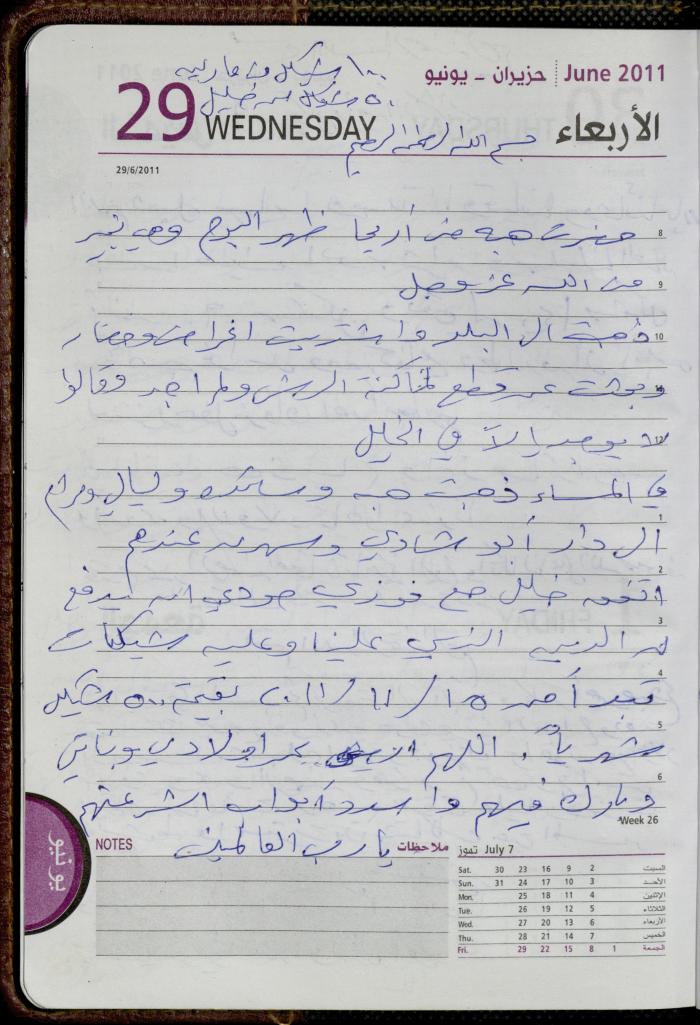 ١٠٠ شيكل من مارييه
٥٠ شيكل من خليل
June 2011 حزيران - يونيو
29 WEDNESDAY الأربعاء
بسم الله الرحمن الرحيم
29/6/2011
حضرت هبه من أريحا ظهر اليوم وهي بخير
8
من الله عز وجل
9
ذهبت ال البلد واشتريت اغراض وخضار
10
وبحثت عن قطع لماكنة الرش ولم اجد وقالوا
11
لا يوجد إلا في الخليل
12
في المساء ذهبت هبه و وليال ومرام
1
ال دار أبو شادي وسهرت عندهم
2
اتفق خليل مع فوزي جودي انه يدفع
3
له الدين الذي علينا وعليه شيكات
4
تبدأ من ١٥/١١/٢٠١١ بقيمة ٥٠٠ شيكل
5
شهرياً. اللهم اولادي وبناتي
6
وبارك فيهم واسدد أبواب الشر عنهم
Week 26
يا رب العالمين
NOTES ملاحظات
July 7 تموز
Sat. 30 23 16 9 2 السبت
Sun. 31 24 17 10 3 الأحد
Mon. 25 18 11 4 الإثنين
Tue. 26 19 12 5 الثلاثاء
Wed. 27 20 13 6 الأربعاء
Thu. 28 21 14 7 الخميس
Fri. 29 22 15 8 1 الجمعة
يونيو